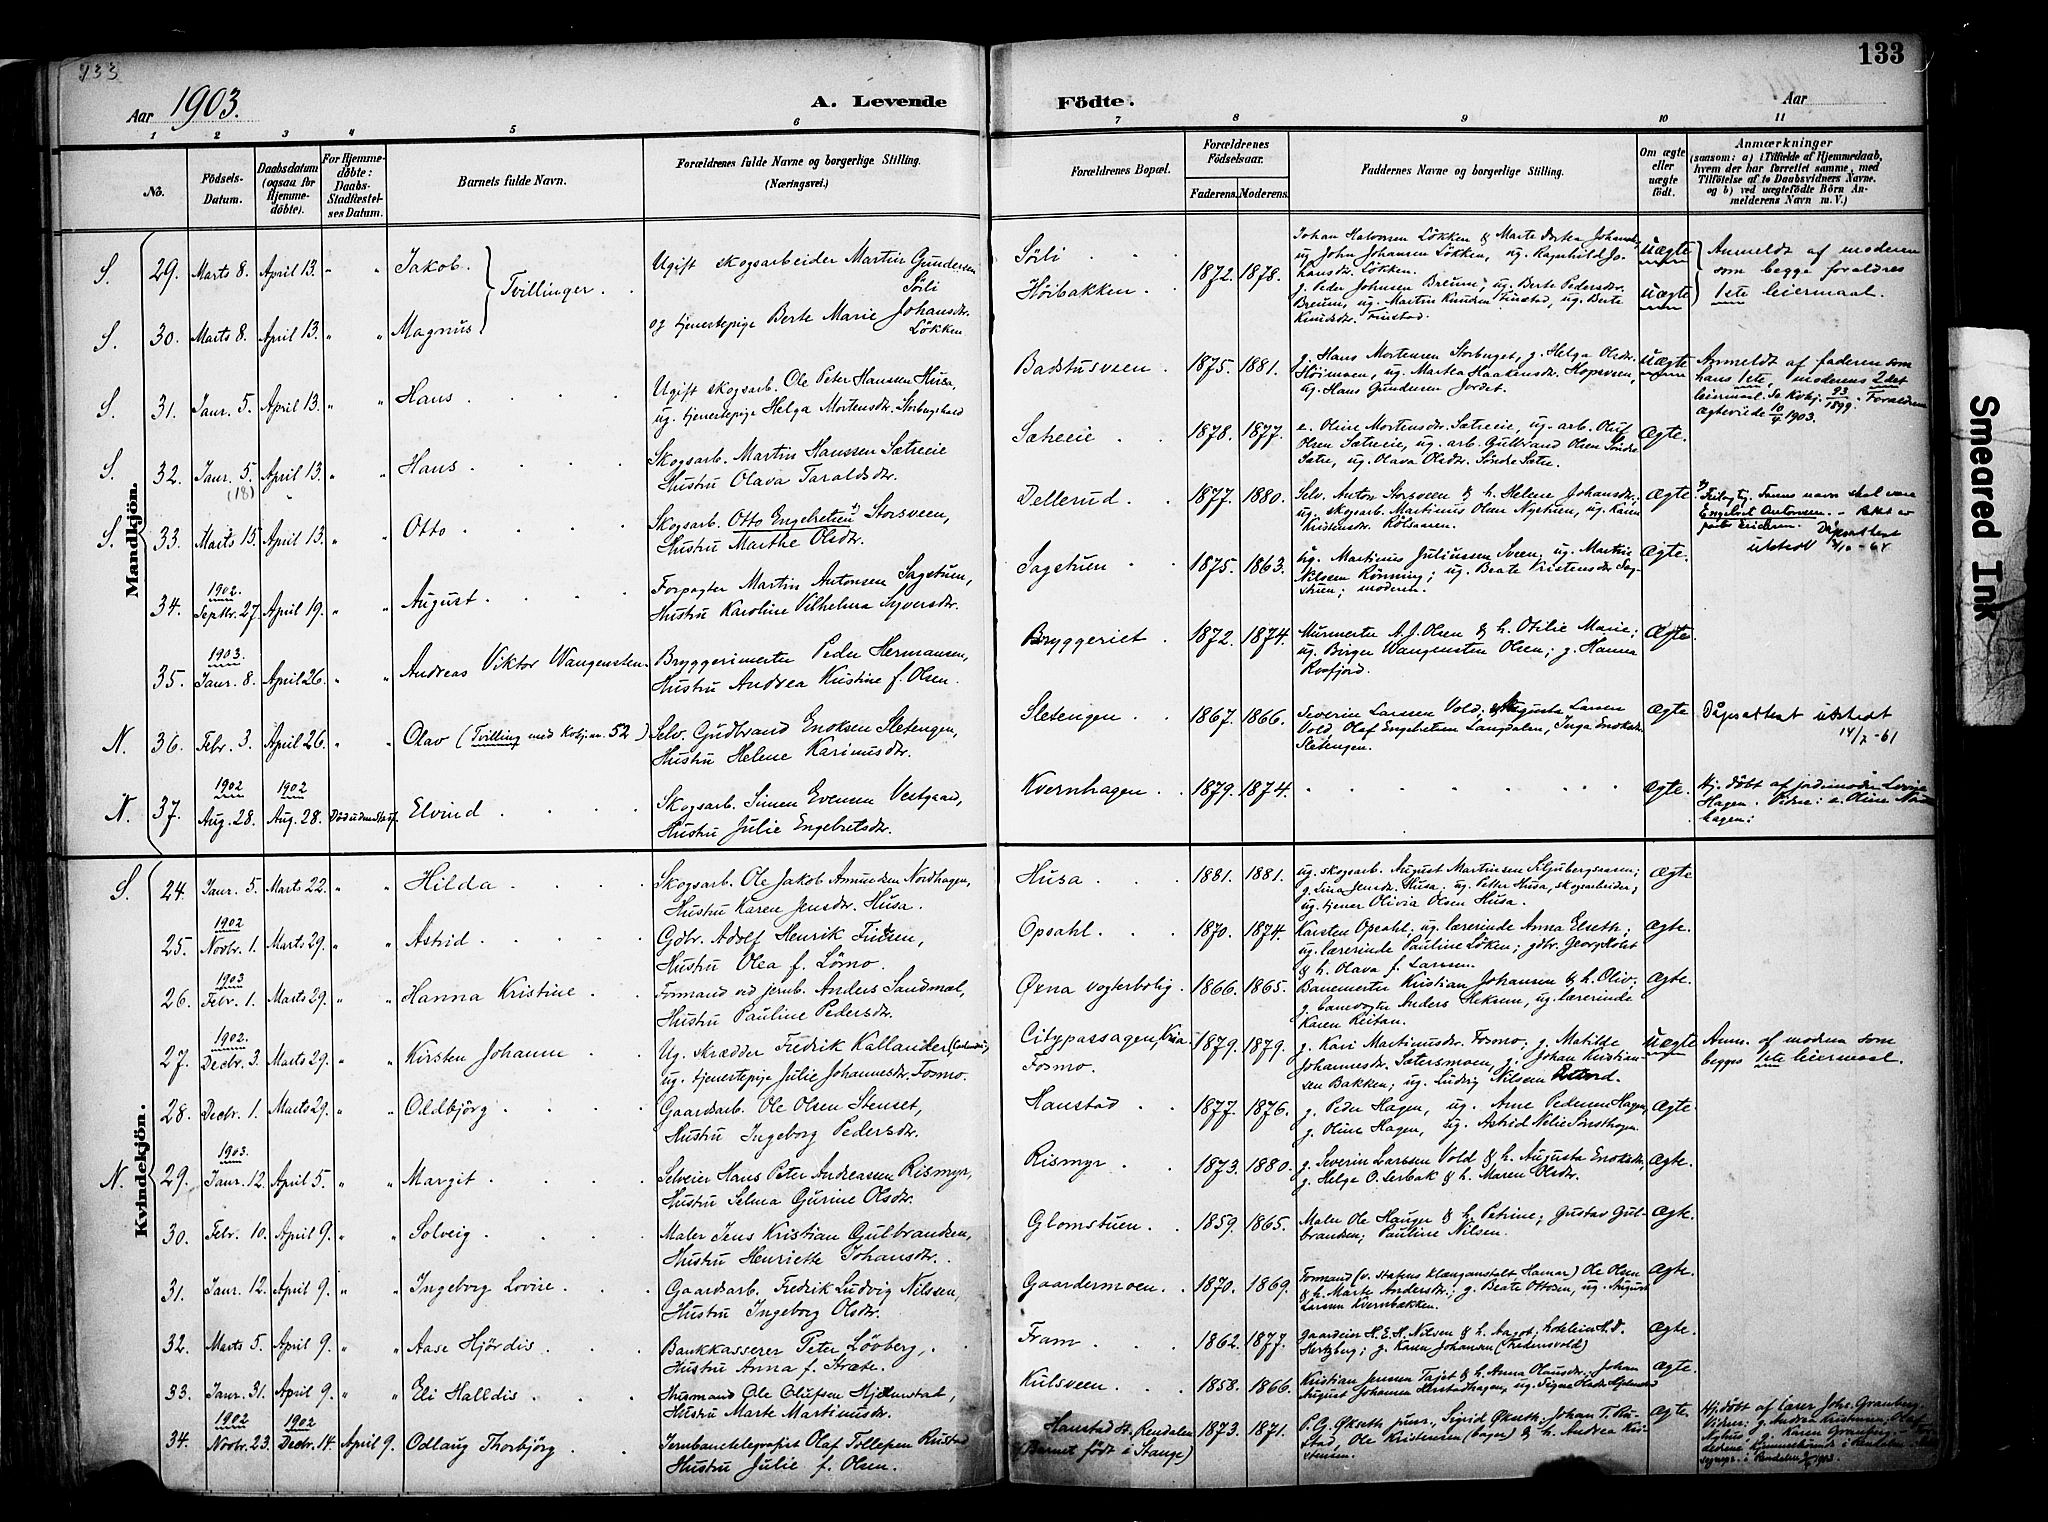 133
133
Aar 1903.
A. Levende
Födte.
Aar
1 2 3 4 5 6 7 8 9 10 11
No.
Födsels-Datum.
Daabsdatum (ogsaa for Hjemmedöbte).
For Hjemmedöbte: Daabs-Stadfæstelses Datum.
Barnets fulde Navn.
Forældrenes fulde Navne og borgerlige Stilling. (Næringsvei.)
Forældrenes Bopæl.
Forældrenes Födselsaar.
Faderens. Moderens.
Faddernes Navne og borgerlige Stilling.
Om ægte eller uægte födt.
Anmærkninger
(saasom: a) i Tilfælde af Hjemmedaab, hvem der har forrettet samme, med Tilföielse af to Daabsvidners Navne, og b) ved uægtefödte Börn Anmelderens Navn m. V.)
Mandkjön.
S. 29. Marts 8. April 13. " " Jakob. Tvillinger. Ugift skogsarbeider Martin Gundersen Sörli
Sörli 1872. 1878. uægte Anmeldt af moderen som begge forældres 1ste leiermaal.
S. 30. Marts 8. April 13. " " Magnus og tjenestepige Berte Marie Johansdr. Løkken
Höibakken uægte
S. 31. Janr. 5. April 13. " " Hans Ugift skogsarb. Ole Peter Hanssen Husa,
ug. tjenestepige Helga Mortensdr.
Badstusveen 1875. 1881. g. Hans Mortensen Storbuget, g. Helga Olsdr. uægte Anmeldt af faderen som hans 1ste, moderens 2det leiermaal. Forældrene ægteviede 10/4 1903.
S. 32. Janr. 5. (18) April 13. " " Hans Skogsarb. Martin Hanssen Sætreeie
Hustru Olava Taraldsdr.
Sætreeie 1878. 1877. e. Oline Mortensdr. Sætreeie, ug. arb. Oluf Olsen Sætreeie, ug. arb. Gulbrand Olsen Söndre Sætre, ug. Olava Olsdr. Söndre Sætre. Ægte.
S. 33. Marts 15. April 13. " " Otto Skogsarb. Otto Engebretsen Storsveen,
Hustru Marthe Olsdr.
Dellerud 1877. 1880. Selv. Anton Storsveen & h. Helene Johansdr.; ug. skogsarb. Martinus Olsen Nystuen, ug. Karen Kristensdr. Ægte. navn skal være Engebret Antonsen. Dåpsattest utstedt
34. 1902. Septbr. 27. April 19. " " August Forpagter Martin Antonsen Sagstuen,
Hustru Karoline Vilhelma Syversdr.
Sagstuen 1875. 1863. ug. Martinus Juliussen Sveen; ug. Martine Nilsen Rönning; ug. Beate Kristensdr Sagstuen; moderen. Ægte.
35. 1903. Janr. 8. April 26. " " Andreas Viktor Wangensten Bryggerimester Peder Hermansen,
Hustru Andrea Kristine f. Olsen.
Bryggeriet 1872. 1874. Murmester A. J. Olsen & h. Otilie Marie; ug. Birger Wangensten Olsen; g. Hanna Ægte.
N. 36. Febr. 3. April 26. " " Olav (Tvilling med Kvkj. nr. 52) Selv. Gudbrand Enoksen Sletengen,
Hustru Helene Karimusdr.
Sletengen 1867. 1866. Severin Larssen Vold, Augusta Larsen Vold, Olaf Engebretsen Langdalen, Inga Enoksdr. Sletengen. Ægte Dåpsattest utstedt 14/7-61
N. 37. 1902 Aug. 28. 1902 Aug. 28. Död uden stadf. Elvind Skogsarb. Simen Evensen Vestgaard,
Hustru Julie Engebretsdr.
Kvernhagen 1879. 1874. ægte. Hj. döbt af jordemoder Lovise Hagen.
Kvindekjön.
S. 24. Janr. 5. Marts 22. " " Hilda Skogsarb. Ole Jakob Amundsen Nordhagen,
Hustru Karen Jensdr. Husa.
Husa 1881. 1881. ug. skogsarb. August Martinsen; g. Lina Jensdr. Husa. ug. Petter Husa, skogsarbeider; ug. tjener Olivia Olsen Husa. Ægte
25. 1902 Novbr. 1. Marts 29. " " Astrid Gdbr. Adolf Henrik Finsen,
Hustru Olea f. Lömo.
Opsahl 1870. 1874. Karsten Opsahl, ug. lærerinde Anna Elseth; ug. lærerinde Pauline Löken; gdbr. Georg Moet & h. Olava f. Larssen. Ægte.
26. 1903 Febr. 1. Marts 29. " " Hanna Kristine Formand ved jernb. Anders Sandmæl,
Hustru Pauline Pedersdr.
Øxna vogterbolig 1866. 1865. Banemester Kristian Johansen & h. Oliv; g. banevogter Anders Heksem, ug. lærerinde Karen Reitan. Ægte.
27. 1902. Decbr. 3. Marts 29. " " Kirsten Johanne Ug. skrædder Fredrik Kallander
ug. tjenestepige Julie Johannesdr. Fosmo.
Citypassagen, Kria
Fosmo. 1879. 1879. g. Kari Martinusdr. Fosmo, g. Matilde Johannesdr. Sætersmoen, g. Johan Kristiansen Bakken; ug. Ludvig Nilsen uægte Anm. af moderen som begges 1ste leiermaal.
28. Decbr. 1. Marts 29. " " Oldbjörg Gaardsarb. Ole Olsen Stenset,
Hustru Ingeborg Pedersdr.
Hanstad 1877. 1876. g. Peder Hagen, ug. Arne Pedersen Hagen, g. Oline Hagen, ug. Astrid Ægte.
N. 29. 1903. Janr. 12. April 5. " " Margit Selveier Hans Peter Andreassen Rismyr,
Hustru Selma Gurine Olsdr.
Rismyr 1873. 1880. g. Severin Larssen Vold & h. Augusta Enoksdr. g. Helge O. Lerbak & h. Maren Olsdr. Ægte.
30. Febr. 10. April 9. " " Solveig Maler Jens Kristian Gulbrandsen,
Hustru Henriette Johansdr.
Glomstuen 1859. 1865. Maler Ole Hauger & h. Petrine; Gustav Gulbrandsen; Pauline Nilsen. Ægte.
31. Janr. 12. April 9. " " Ingeborg Lovise Gaardsarb. Fredrik Ludvig Nilsen,
Hustru Ingeborg Olsdr.
Gaardermoen 1870. 1869. Formand (v. statens klænganstalt Hamar) Ole Olsen & h. Marte Andersdr.; g. Beate Ottosen, ug. August Larssen Kvernbakken. Ægte.
32. Marts 5. April 9. " " Aase Hjördis Bankkasserer Peter Lövberg,
Hustru Anna f. Stræte.
Fram 1862. 1877. Gaardeier H. E. H. Nilsen & h. Aagot; hoteleier H. D. Hertzberg; g. Karen Johansen (Fredensvold) Ægte.
33. Janr. 31. April 9. " " Eli Halldis Husmand Ole Olufsen Hjelmstad,
Hustru Marte Martinusdr.
Kulsveen 1858. 1866. Kristian Jensen Tajet & h. Anna Olausdr., Johan August Johansen Ægte
34. 1902 Novbr. 23. 1902 Decbr. 14. April 9. Odlaug Thorbjörg Jernbanetelegrafist Olaf Tollefsen Rustad
Hustru Julie f. Olsen.
Hanstad st. Rendalen
(Barnet födt i Stange) 1873. 1871. P. G. Økseth, Sigrid Økseth, Johan T. Rustad, Ole Kristensen (bager) & h. Andrea Kristensen. Ægte. Hj. döbt af lærer Johs. Granberg.
Smeared Ink